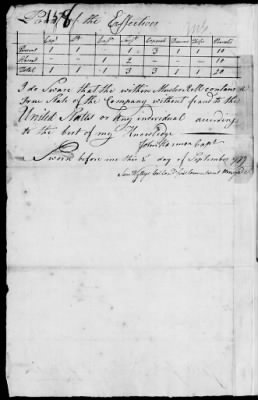 158
of the Effectives
Capt Lt Ensn Sergt Corporal Drum Fife Privates
Present 1 1 1 3 1 1 10
Absent 1 2 10
Total 1 1 1 3 3 1 1 20
I do Swear that the within Muster Roll contains a
True State of the Company without fraud to the
United States or Any individual according
to the best of my Knowledge
John Capt
Sworn before me this 8 day of September 1777